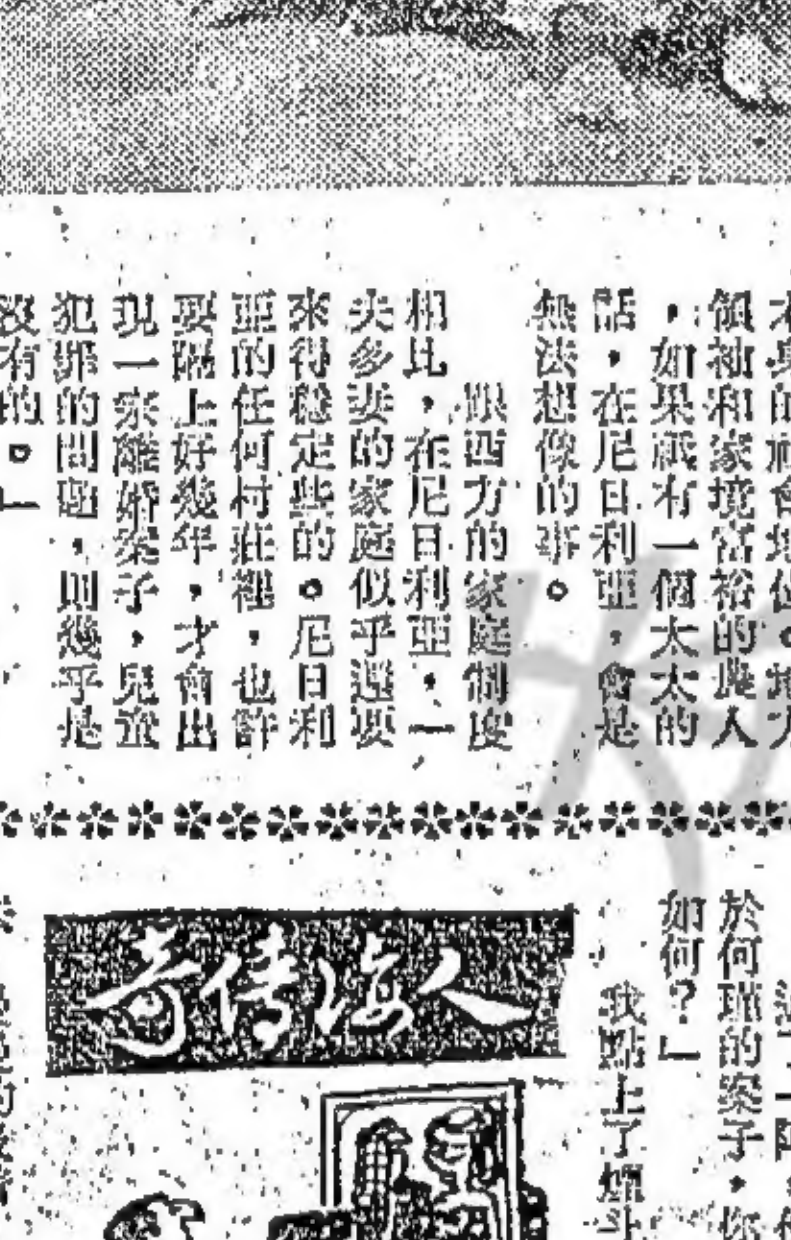 本身的社會地位。地方
領袖和家境富裕的男人
，如果祇有一個太太的
話，在尼日利亞，會是
無法想像的事。
跟西方的家庭制度
相比，在尼日利亞，一
夫多妻的家庭似乎還要
來得穩定些的。尼日利
亞的任何村莊裡，也許
要隔上好幾年，才會出
現一宗離婚案子，兒童
犯罪的問題，則幾乎是
沒有的。」
於何瑾的案子，你
如何？」
我點上了煙斗
人海傳奇